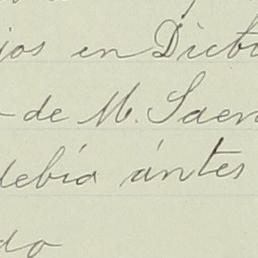 jos en Dictu
de M. Saen
debía ántes
do